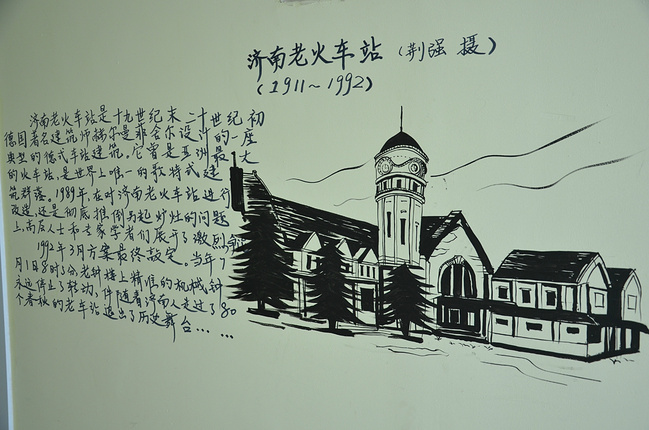 济南老火车站（荆强 摄）
（1911～1992）
济南老火车站是十九世纪末二十世纪初
德国著名建筑师赫尔曼菲舍尔设计的一座
典型的德式车站建筑。它曾是亚洲最大
的火车站，是世界上唯一的哥特式建
筑群落。1989年，在对济南老火车站进行
改造，还是彻底推倒另起炉灶的问题
上，高层人士和专家学者们展开了激烈争
1992年3月方案最终敲定。当年7
月1日8时5分，老钟楼上精准的机械钟
永远停止了转动，伴随着济南人走过了80
个春秋的老车站退出了历史舞台……